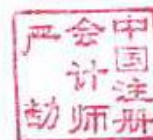 中国注册
会计师
严劼